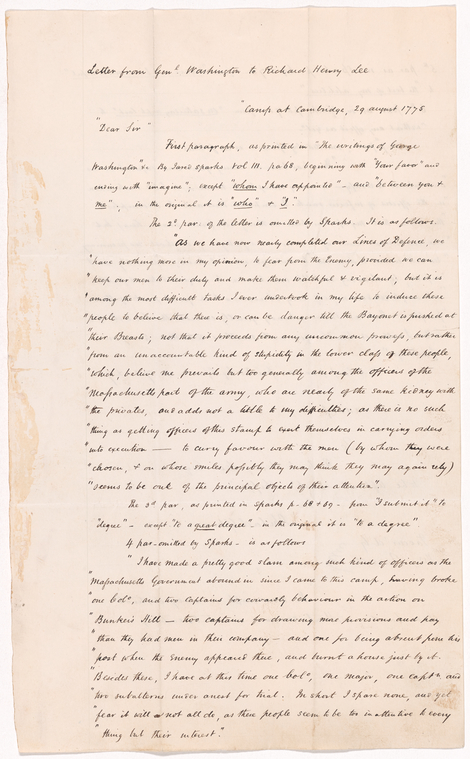 Letter from Genl. Washington to Richard Henry Lee
"Camp at Cambridge, 29 august 1775
"Dear Sir"
First paragraph, as printed in "The writings of George
Washington" &c. By Jared Sparks Vol III. pa 68, beginning with "Your favor" and
ending with "imagine"; except "whom I have appointed" – and "between you &
me"; in the original it is "who" & "I."
The 2d. par. of the letter is omitted by Sparks. It is as follows.
"As we have now nearly completed our Lines of Defence, we
"have nothing more in my opinion, to fear from the Enemy, provided we can
"keep our men to their duty and make them watchful & vigilant; but it is
"among the most difficult Tasks I ever undertook in my life to induce these
"people to believe that there is, or can be danger till the Bayonet is pushed at
"their Breasts; not that it proceeds from any uncommon prowess, but rather
"from an unaccountable kind of stupidity in the lower class of these people,
"which, believe me prevails but too generally among the officers of the
"Massachusetts part of the army, who are nearly of the same kidney with
"the privates, and adds not a little to my difficulties; as there is no such
"thing as getting officers of this stamp to exert themselves in carrying orders
"into execution — to curry favour with the men (by whom they were
"chosen, & on whose smiles possibly they may think they may again rely)
"seems to be one of the principal objects of their attention".
The 3d par, as printed in Sparks p. 68 & 69 – from "I submit it" to
"degree" – except "to a great degree" – in the original it is "to a degree"
4 par – omitted by Sparks – is as follows
"I have made a pretty good slam among such kind of officers as the
"Massachusetts Government abound in since I came to this camp, having broke
"one Colo, and two Captains for cowardly behaviour in the action on
"Bunker's Hill – two captains for drawing more provisions and pay
"than they had men in their company – and one for being absent from his
"post when the Enemy appeared there, and burnt a house just by it.
"Besides these, I have at this time one Colo., one major, one captn. and
"two subalterns under arrest for trial. In short I spare none, and yet
"fear it will not all do, as these people seem to be too inattentive to every
"thing but their interest."